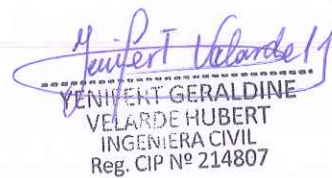 Yenifert Velarde H
YENIFERT GERALDINE
VELARDE HUBERT
INGENIERA CIVIL
Reg. CIP Nº 214807